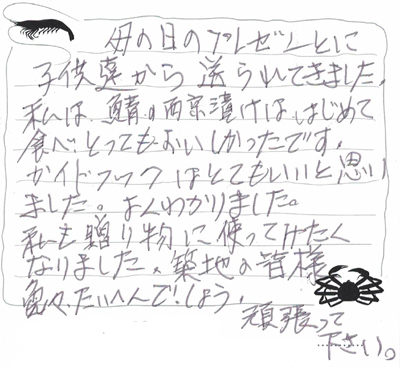 母の日のプレゼントに
子供達から送られてきました。
私は、鯖の西京漬けは、はじめて
食べとってもおいしかったです。
ガイドブックはとてもいいと思い
ました。よくわかりました。
私も贈り物に使ってみたく
なりました。築地の皆様
色々たいへんでしょう。
頑張って
下さい。